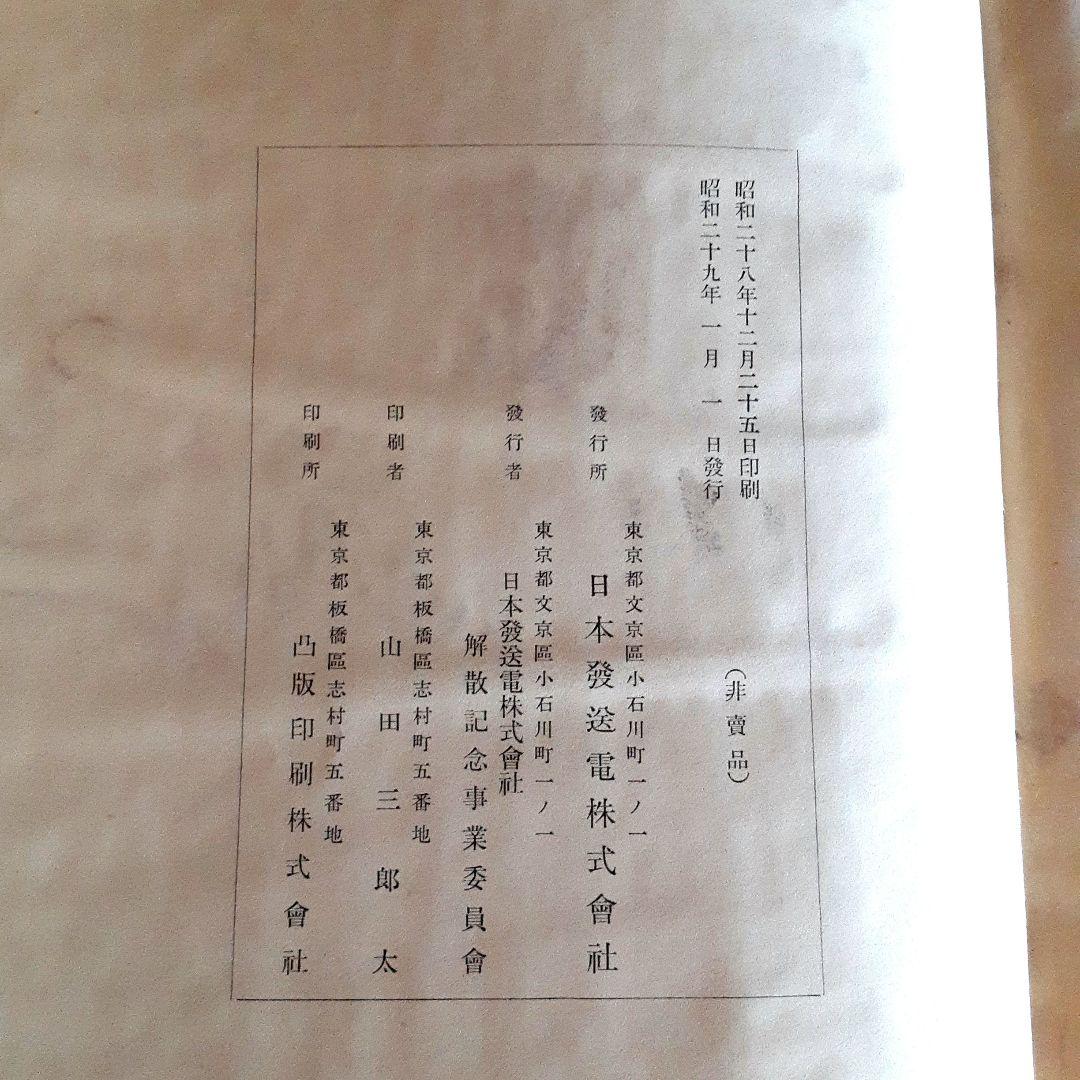 昭和二十八年十二月二十五日印刷
昭和二十九年一月一日發行
(非賣品)
東京都文京區小石川町一ノ一
發行所
日本發送電株式會社
東京都文京區小石川町一ノ一
發行者
日本發送電株式會社
解散記念事業委員會
東京都板橋區志村町五番地
印刷者
山田三郎太
東京都板橋區志村町五番地
印刷所
凸版印刷株式會社